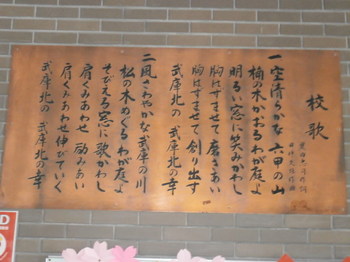 校歌
一 空清らかな 六甲の山
楠の木かおる わが庭よ
明るい窓に 笑みかわし
胸はずませて 磨きあい
胸はずませて 創り出す
武庫北の 武庫北の幸
二 風さわやかな 武庫の川
松の木めぐる わが庭よ
そびえる窓に 歌かわし
肩くみあわせ 励みあい
肩くみあわせ 伸びていく
武庫北の 武庫北の幸